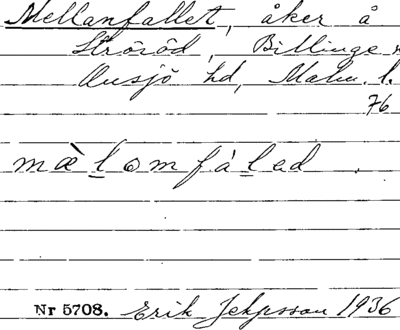 Mellanfallet, åker å
Ströröd, Billinge
Onsjö hd, Malm. l.
76
mæ̀lomfáled.
Nr 5708. Erik Jeppsson 1936